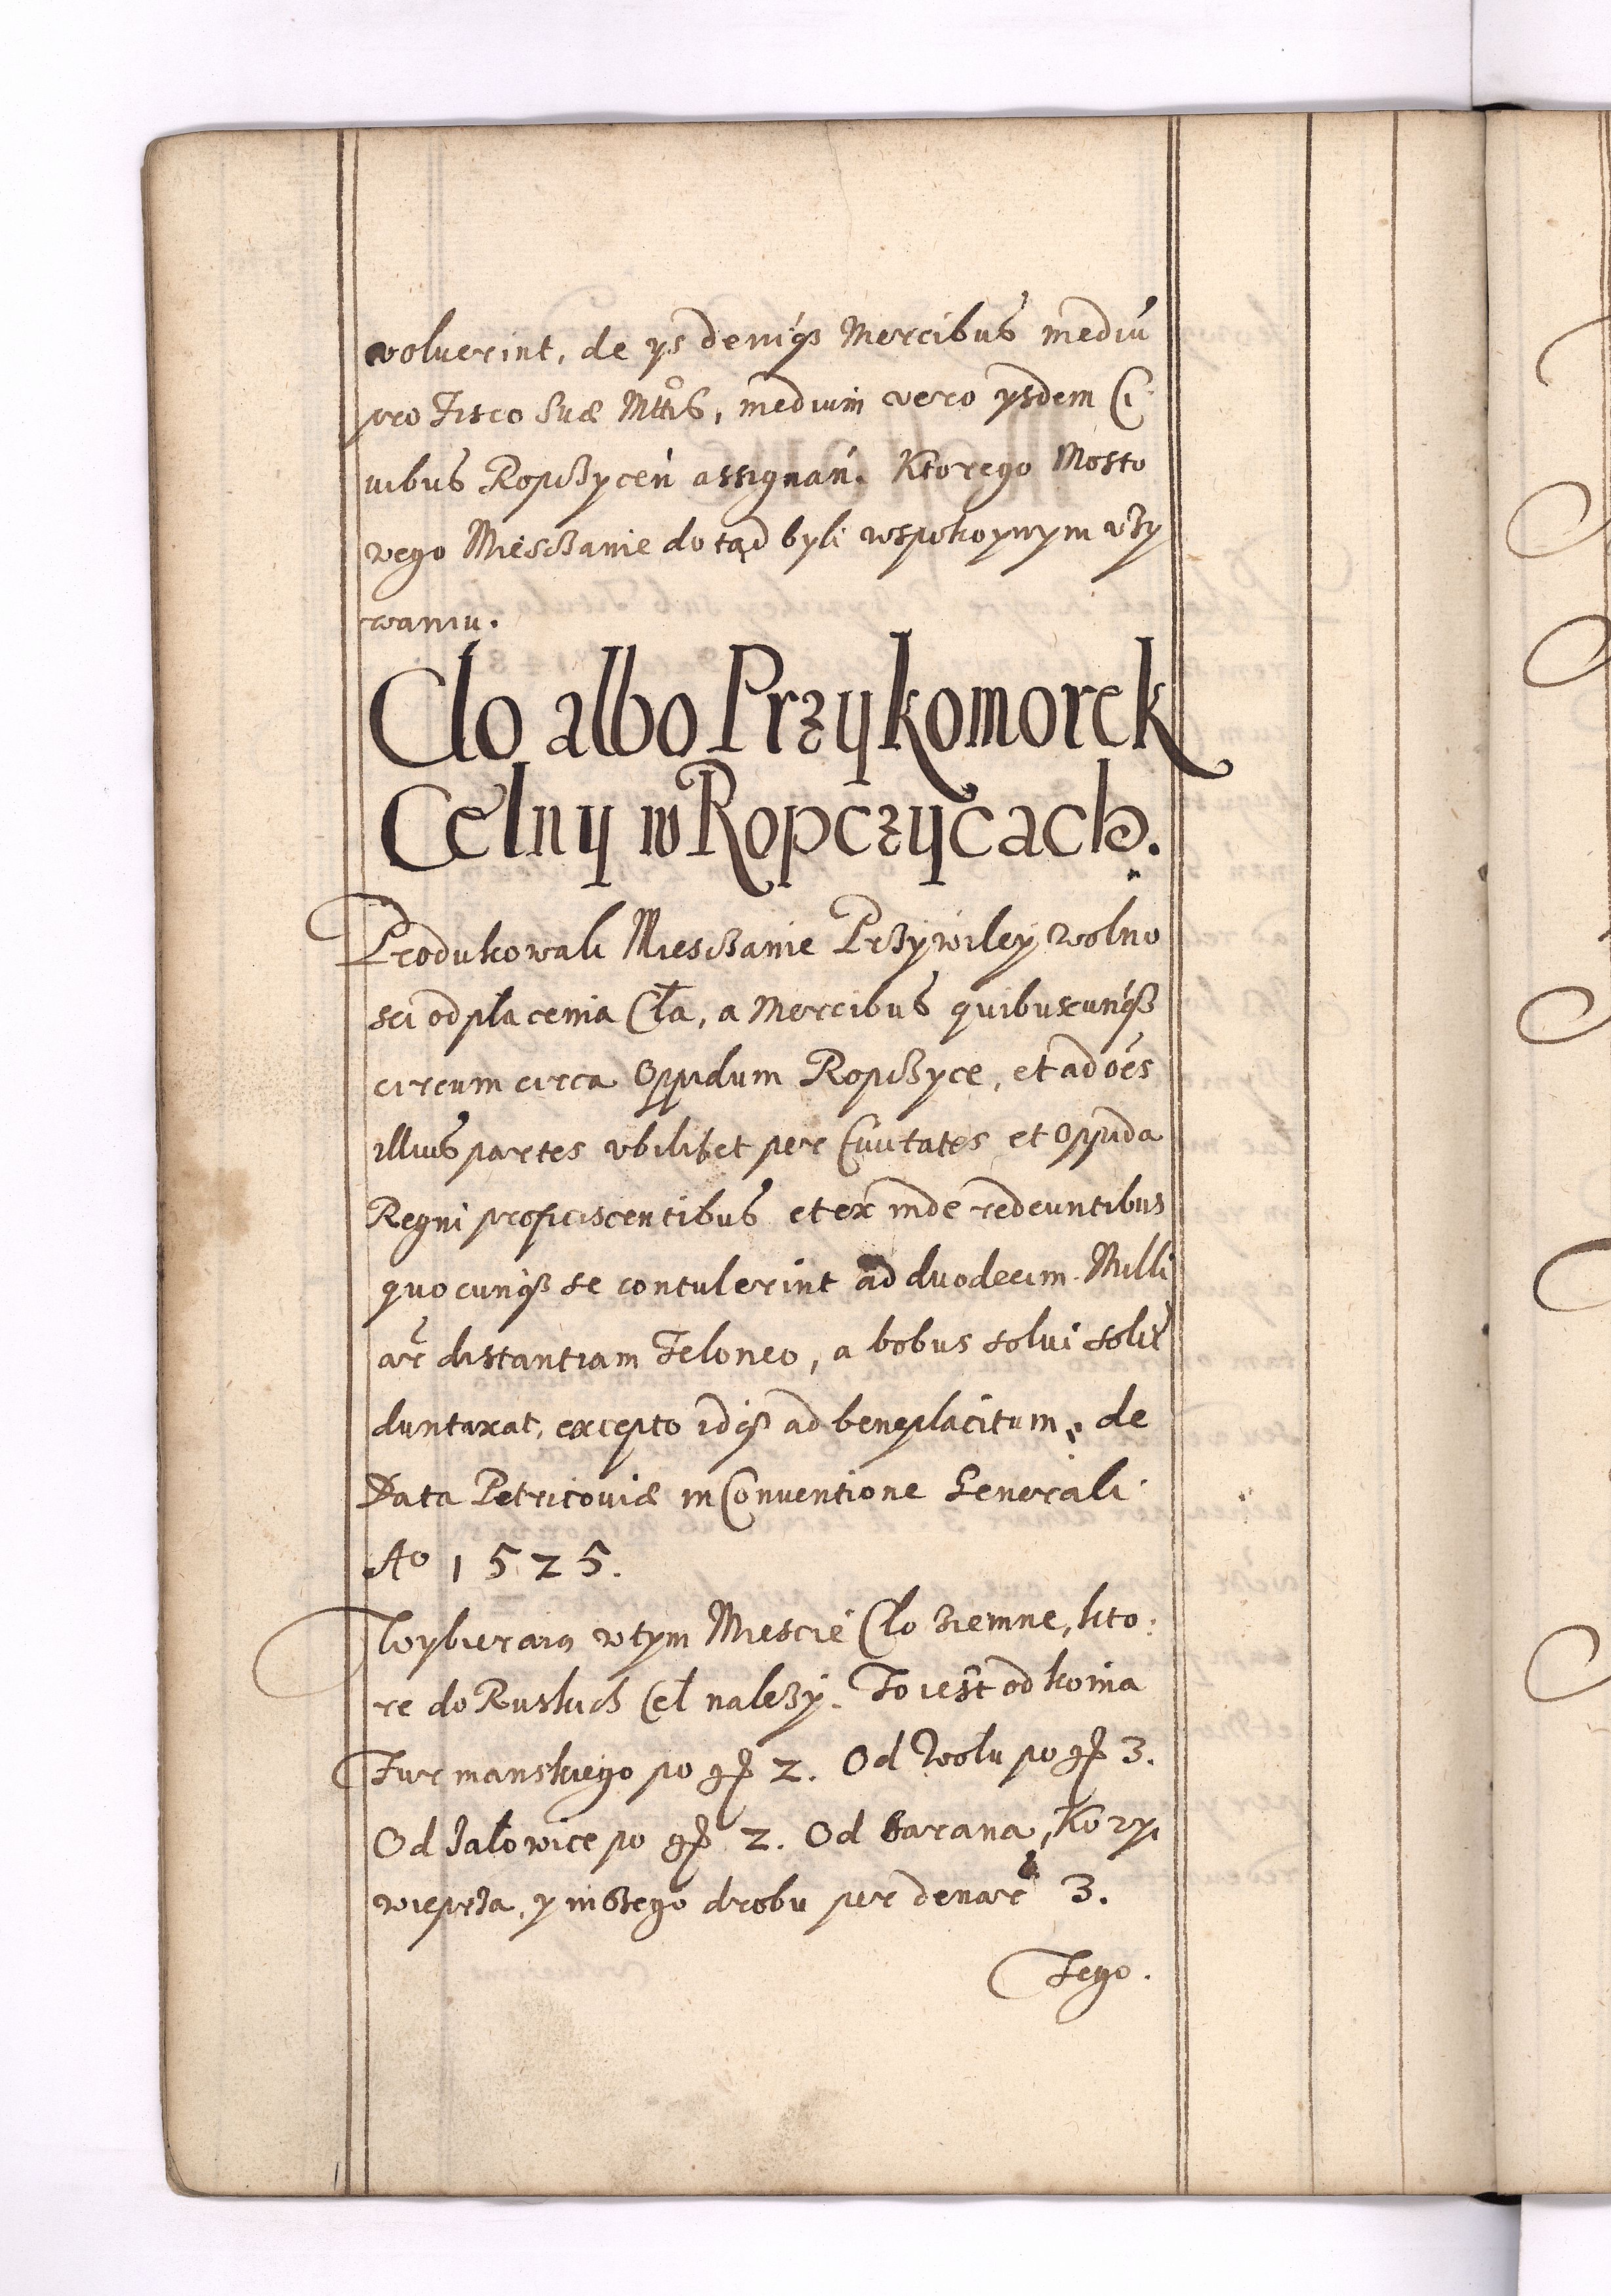 voluerint, de ys deniqз Mercibus mediú
pro Fisco Suæ Mttis, medium vero ysdem Ci
uibus Ropczyceń assignań. Ktorego Mosto
wego Miesczanie dotąd byli wspokoynym vży
waniu.
Clo albo Przykomorek
Celny w Ropczycach.
Produkowali Miesczanie Przywiley wolno
sci od płacenia Cła, a Mercibus quibuscunqз
circum circa Oppidum Ropczyce, et ad óes
illius partes vbilibet per Ciuitates et Oppida
Regni proficiscentibus et ex inde redeuntibus
quocunqз se contulerint ad duodecim Milli
ar distantiam Teloneo, a bobus solui solit
duntaxat, excepto idqз ad beneplacitum, de
Data Petricoviæ in Conventione Generali
Ao 1525.
Wybieraią wtym Miescie Cło ziemne, kto:
re do Ruskich Ceł należy. To iest od konia
Furmanskiego po gr 2. Od Wołu po gr 3.
Od Jałowice po gr 2. Od barana, Kozy,
wieprza, y inszego drobu per denar 3.
Tego.